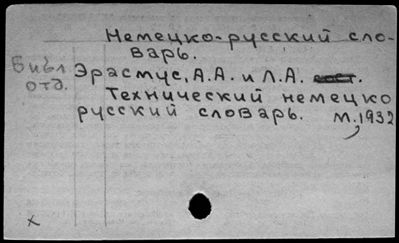 Немецко-русский сло-
варь.
Библ
отд.
Эрасмус, А.А. и Л.А.
Технический немецко
русский словарь. М., 1932
x